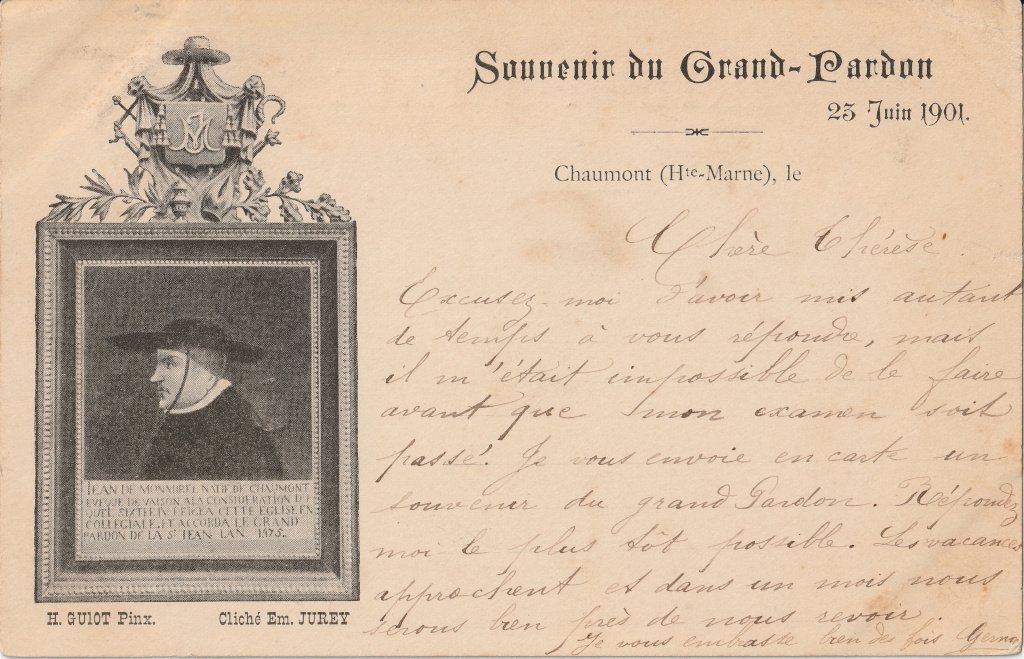 Souvenir du Grand-Pardon
23 Juin 1901.
Chaumont (Hte-Marne), le
Chère Thérèse.
Excusez-moi d'avoir mis autant
de temps à vous répondre, mais
il m'était impossible de le faire
avant que mon examen soit
passé. Je vous envoie en carte un
souvenir du grand Pardon. Répondez
moi le plus tôt possible. Les vacances
approchent et dans un mois nous
serons bien près de nous revoir.
Je vous embrasse bien des fois
JM
JEAN DE MONMIREL NATIF DE CHAUMONT
EVEQUE DE VAISON A LA CONSIDERATION DU
QUEL SIXTE IV ERIGEA CETTE EGLISE EN
COLLEGIALE, ET ACCORDA LE GRAND
PARDON DE LA St JEAN LAN 1475.
H. GUIOT Pinx.
Cliché Em. JUREY